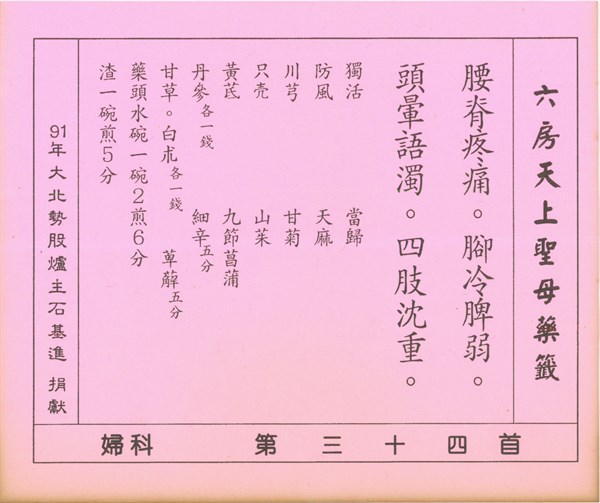 六房天上聖母藥籤
腰脊疼痛。腳冷脾弱。
頭暈語濁。四肢沈重。
獨活 當歸
防風 天麻
川芎 甘菊
只壳 山茱
黃芪 九節菖蒲
丹參各一錢 細辛五分
甘草。白朮各一錢 萆薢五分
藥頭水碗一碗2煎6分
渣一碗煎5分
91年大北勢股爐主石基進 捐獻
婦科 第三十四首